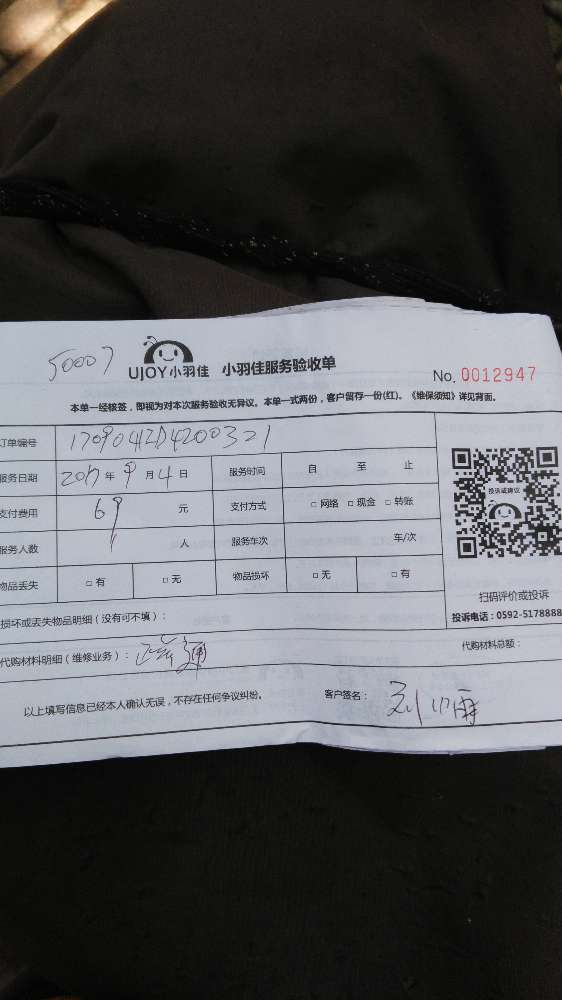 50007
UJOY小羽佳 小羽佳服务验收单
No. 0012947
本单一经核签，即视为对本次服务验收无异议。本单一式两份，客户留存一份(红)。《维保须知》详见背面。
订单编号 170904124200321
服务日期 2017 年 9 月 4 日 服务时间 自 至 止
支付费用 69 元 支付方式 □ 网络 □ 现金 □ 转账
服务人数 1 人 服务车次 车/次
物品丢失 □ 有 □ 无 物品损坏 □ 无 □ 有
投诉或建议
扫码评价或投诉
投诉电话：0592-5178888
损坏或丢失物品明细（没有可不填）：
代购材料明细（维修业务）： 代购材料总额：
以上填写信息已经本人确认无误，不存在任何争议纠纷。 客户签名：